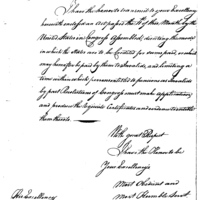 I have the honor to transmit to your Excellency
herewith enclosed an Act passed the 4 of this Month by the
United States in Congress Assembled, declaring the manner
in which the States are to be Credited for sums paid, or which
may hereafter be paid by them to Invalids, and limiting a
time within which persons entitled to pensions as Invalids
by past Resolutions of Congress must make application
and produce the requisite Certificates and evidence to entitle
them thereto.
With great Respect
I have the Honor to be
Your Excellency's
Most Obedient and
Most Humble Servt
His Excellency